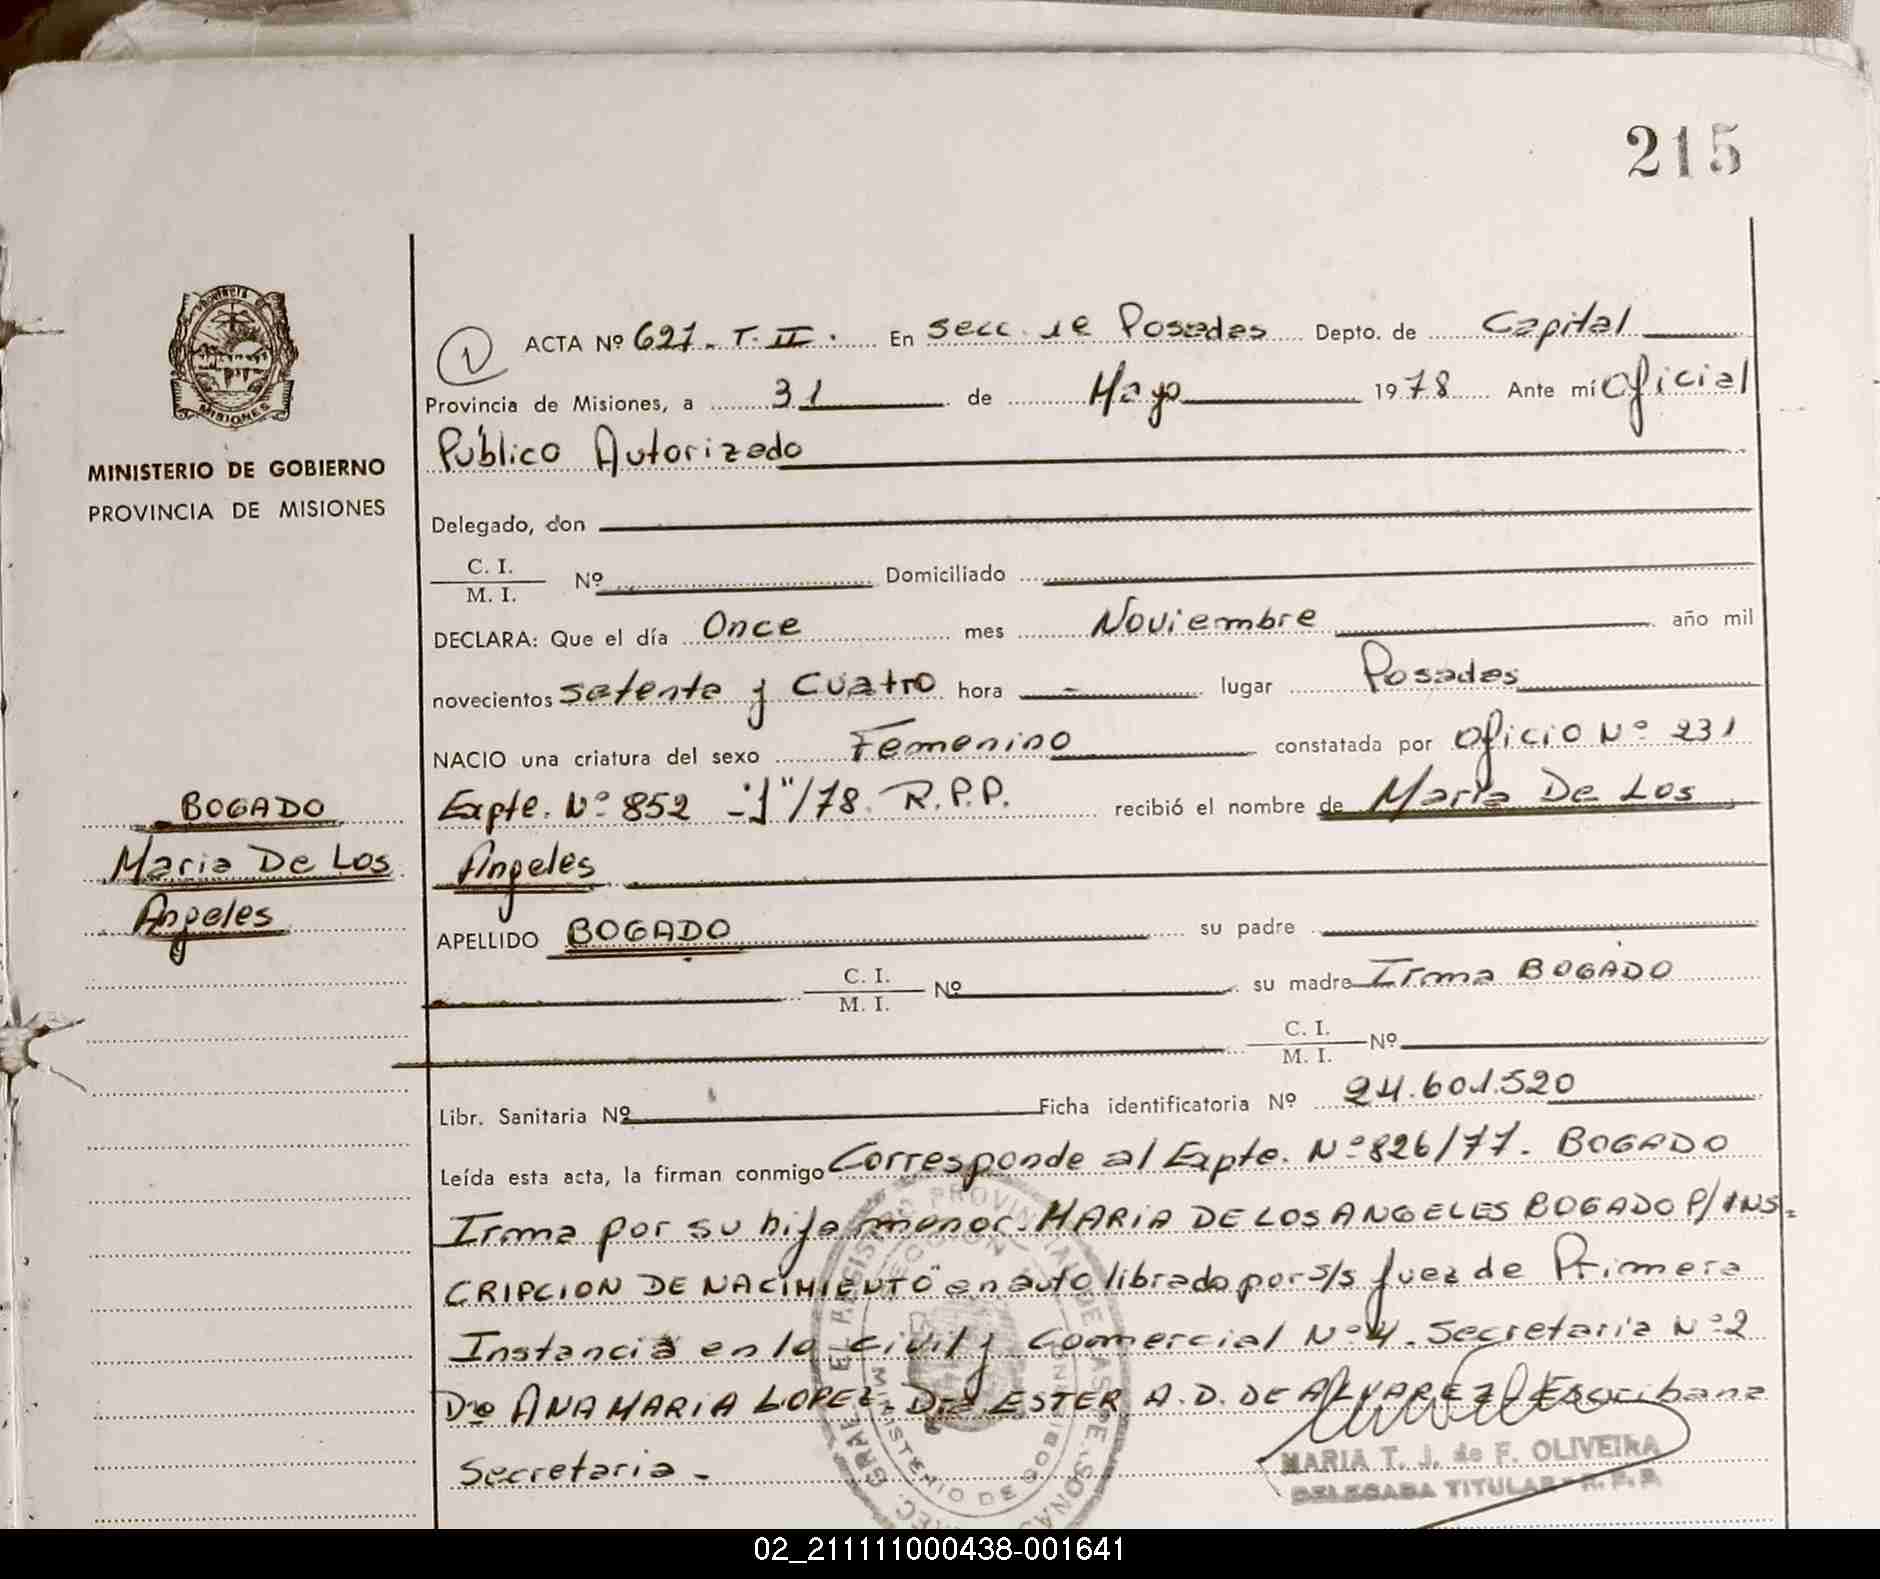 215
PROVINCIA DE
MISIONES
MINISTERIO DE GOBIERNO
PROVINCIA DE MISIONES
BOGADO
Maria De Los
Angeles
1 ACTA Nº 627. T. II. En Secc. 1e Posadas Depto. de Capital
Provincia de Misiones, a 31 de Mayo 1978 Ante mí Oficial
Público Autorizado
Delegado, don
C. I.
M. I. Nº Domiciliado
DECLARA: Que el día Once mes Noviembre año mil
novecientos setenta y Cuatro hora - lugar Posadas
NACIO una criatura del sexo Femenino constatada por Oficio Nº 231
Expte. Nº 852 -"J"/78. R.P.P. recibió el nombre de Maria De Los
Angeles
APELLIDO BOGADO su padre
C. I.
M. I. Nº su madre Irma BOGADO
C. I.
M. I. Nº
Libr. Sanitaria Nº Ficha identificatoria Nº 24.601.520
Leída esta acta, la firman conmigo Corresponde al Expte. Nº 826/77. BOGADO
Irma por su hija menor. MARIA DE LOS ANGELES BOGADO P/INS-
CRIPCION DE NACIMIENTO" en auto librado por s/s Juez de Primera
Instancia en lo Civil y Comercial Nº 4. Secretaria Nº 2
Dra ANA MARIA LOPEZ. Dra ESTER A. D. DE ALVAREZ Escribana
Secretaria -
MARIA T. J. de F. OLIVEIRA
DELEGADA TITULAR - R. P. P.
02_211111000438-001641